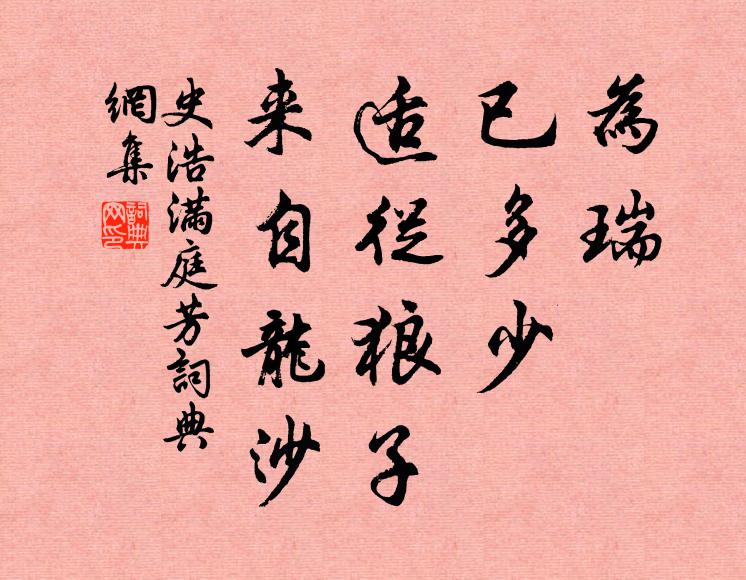 為瑞
已多少
适從狼子
来自龍沙
史浩滿庭芳詞典
網集
詞典
网印